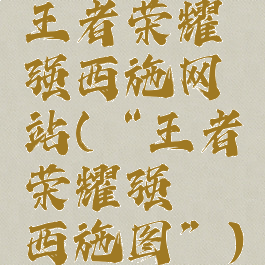 王者荣耀
强西施网
站(“王者
荣耀强
西施图”)